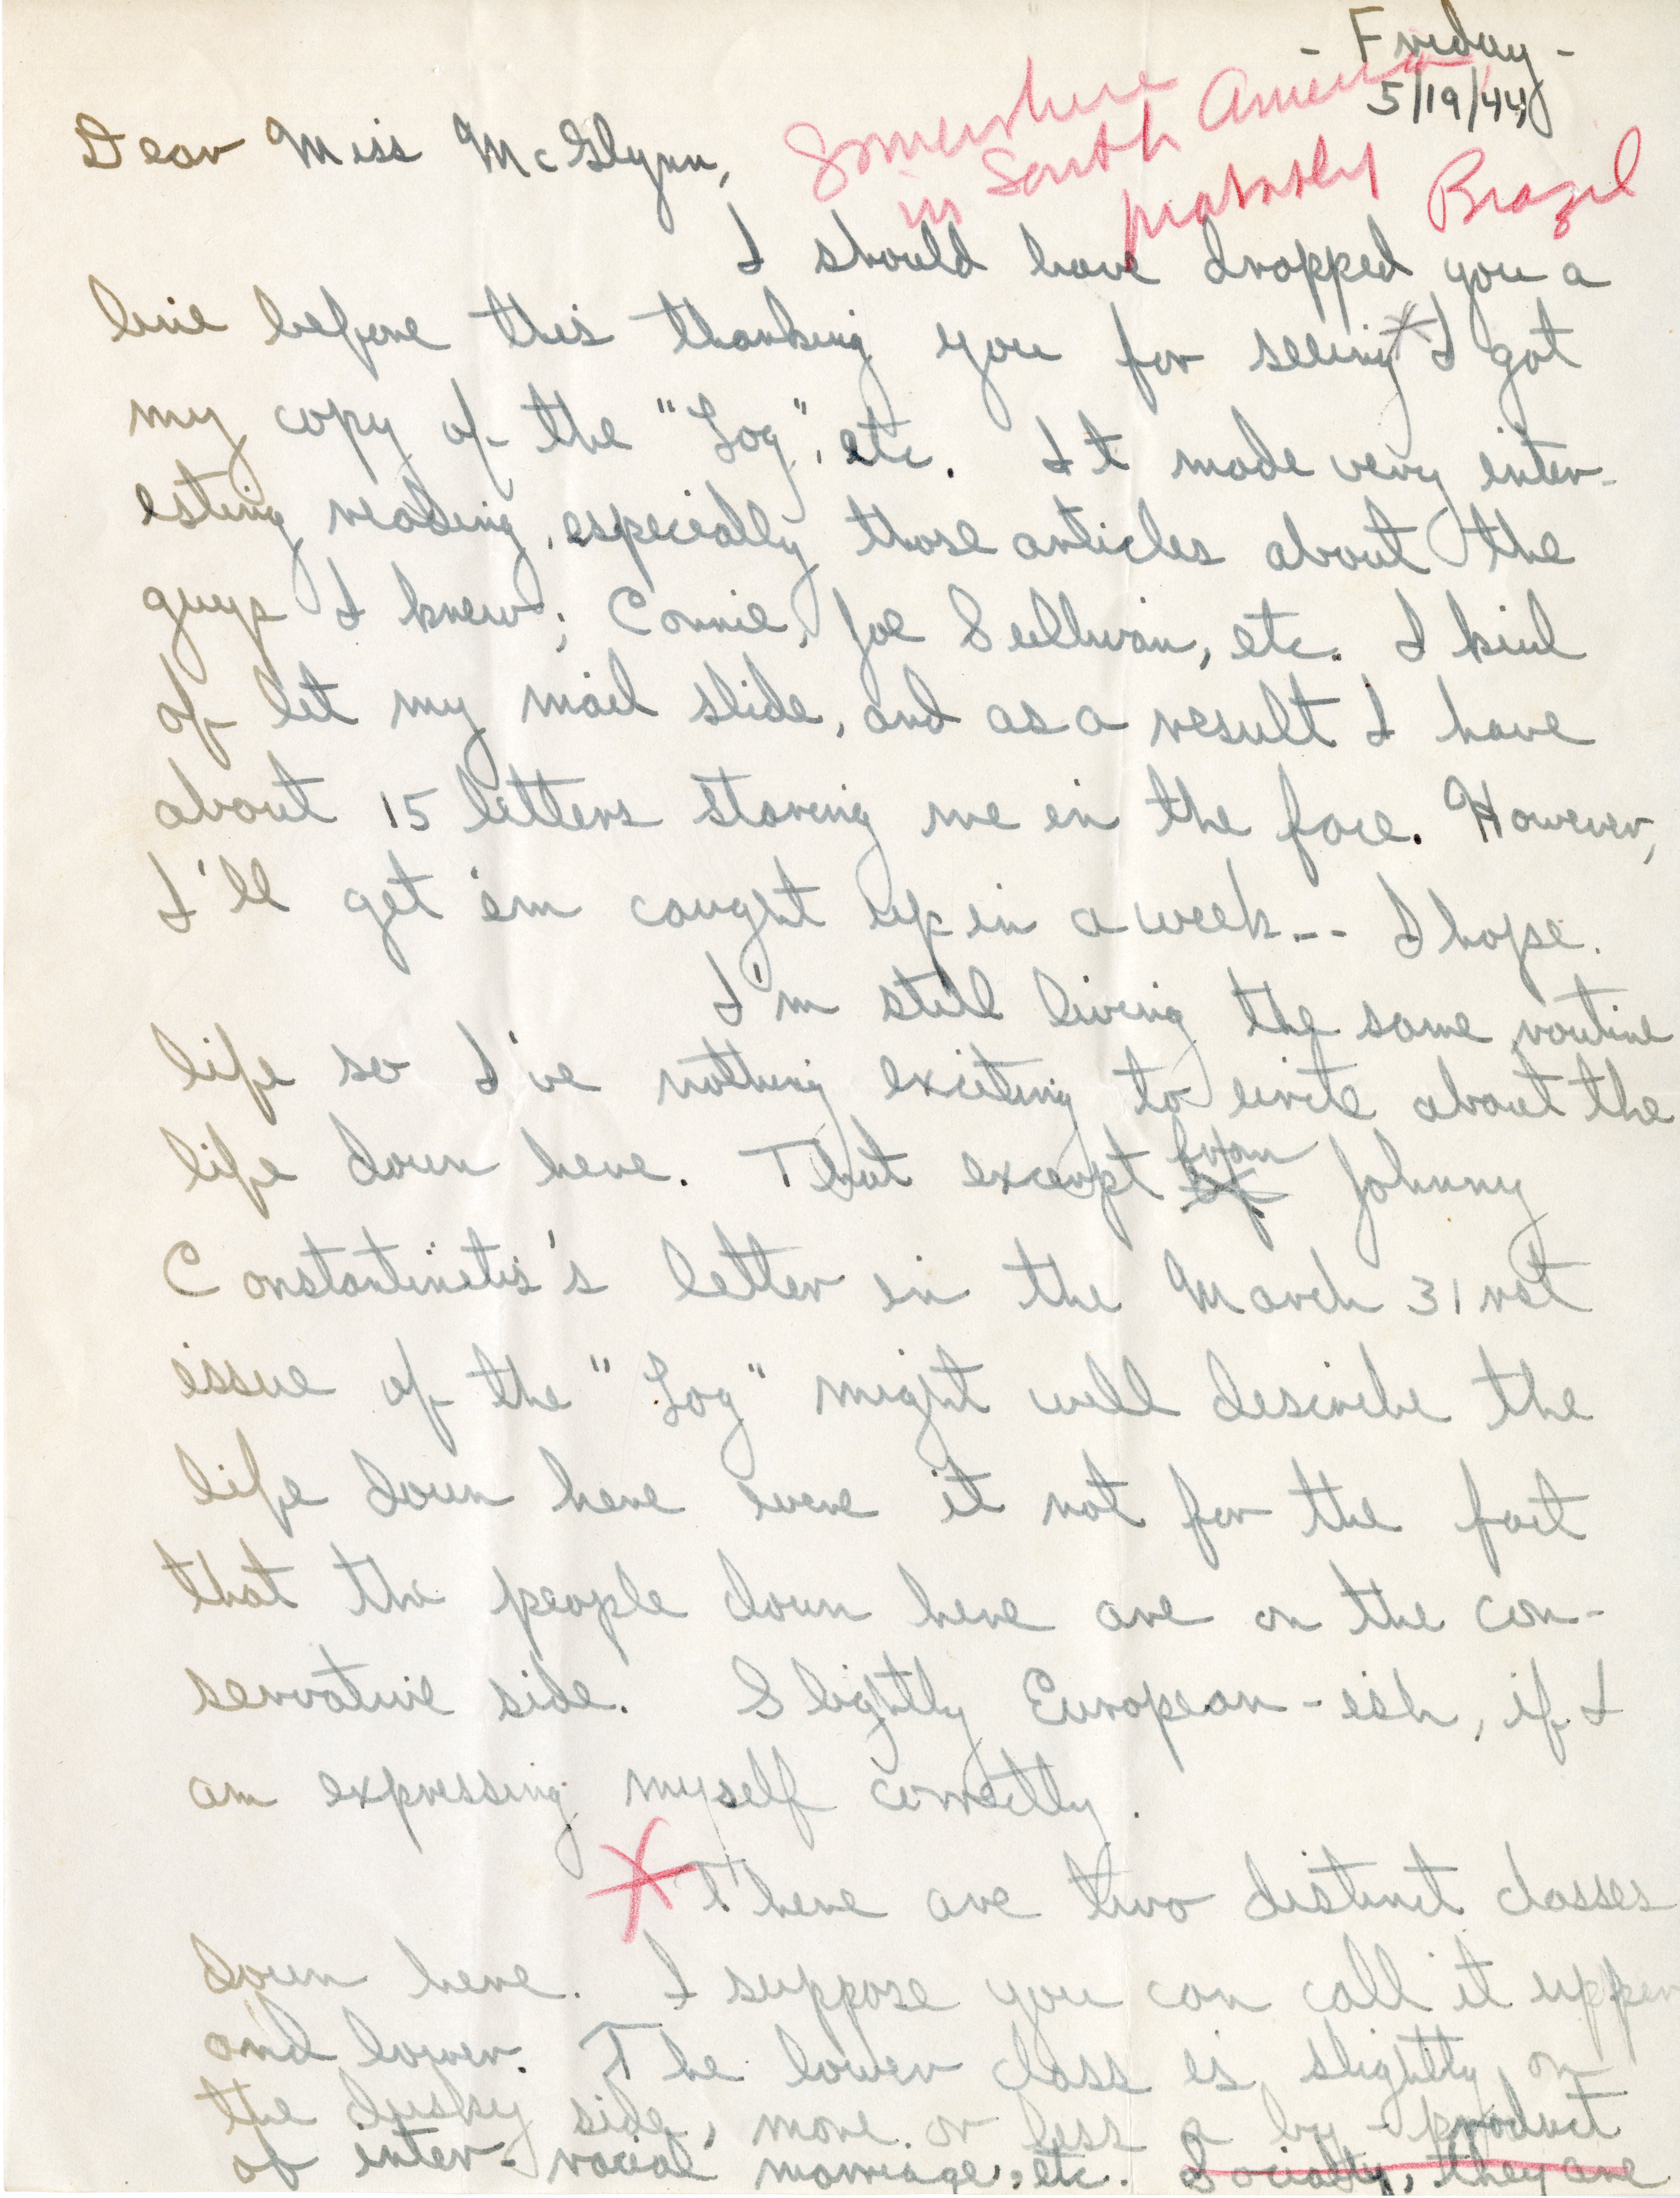 - Friday -
5/19/44
Somewhere
in South America
probably Brazil
Dear Miss McGlynn,
I should have dropped you a
line before this thanking you for seeing I got
my copy of the "Log", etc. It made very inter-
esting reading, especially those articles about the
guys I knew; Connie, Joe Sullivan, etc. I kind
of let my mail slide, and as a result I have
about 15 letters staring me in the face. However,
I'll get 'em caught up in a week -- I hope.
I'm still living the same routine
life so I've nothing exciting to write about the
life down here. That excerpt from Johnny
Constantinetis's letter in the March 31rst
issue of the "Log" might well describe the
life down here were it not for the fact
that the people down here are on the con-
servative side. Slightly European-ish, if I
am expressing myself correctly.
There are two distinct classes
down here. I suppose you can call it upper
and lower. The lower class is slightly on
the dusky side, more or less a by-product
of inter-racial marriage, etc. Socially, they are